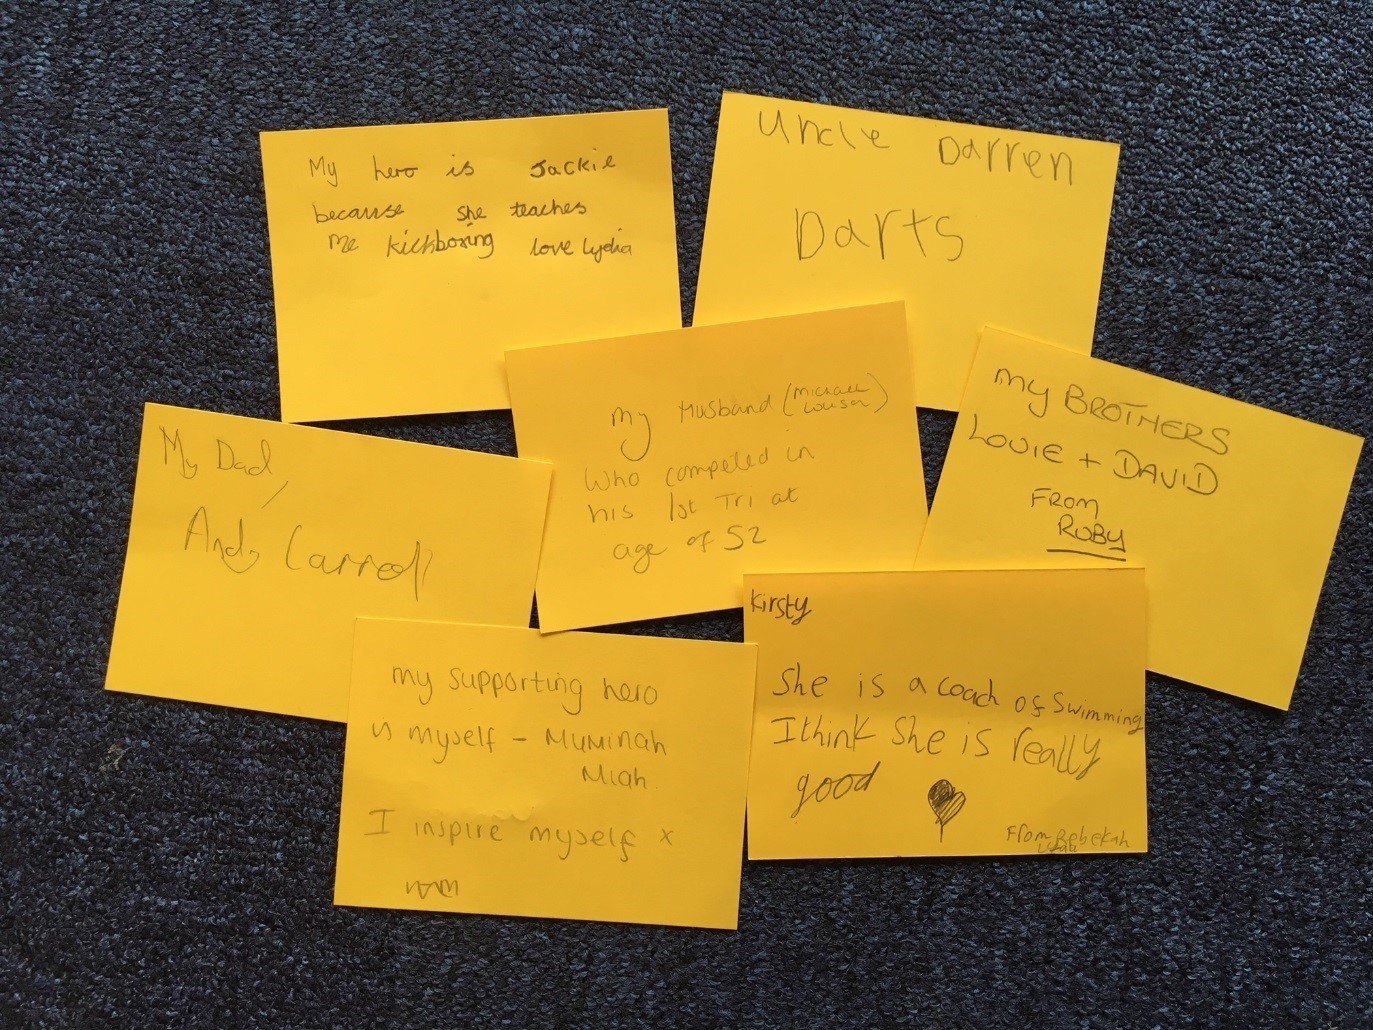 My hero is Jackie
because she teaches
me kickboxing love Lydia
Uncle Darren
Darts
My Husband (Michael
)
Who competed in
his 1st Tri at
age of 52
My BROTHERS
LOUIE + DAVID
FROM
RUBY
My Dad,
Andy Carroll
Kirsty
She is a coach of Swimming
I think She is really
good
From Rebekah
my supporting hero
is myself - MUMINAH
MIAH.
I inspire myself x